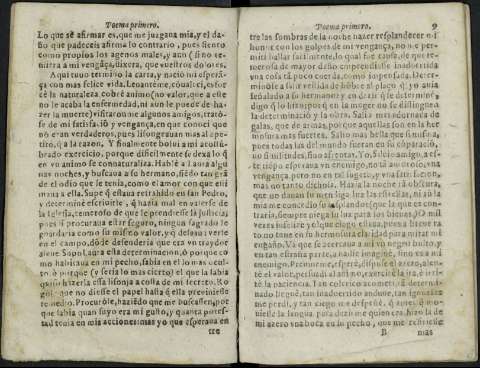 Poema primero.
Lo que sè afirmar es, que me juzgana mia, y el da-
ño que padeceis afirma lo contrario, pues siento
como propios los agenos males, y aun (si no te-
miera a mi vengãça, dixera, que vuestros dolores.
Aqui tuuo termino la carta, y nació mi esperã-
ça con mas felice vida. Leoante me, (qual es, esfuer
çè la naturaleza cobrè animo (no valor, que a este
no le acaba la enfermedad, ni aun le puede de ha-
zer la muerte) visitaronme algunos amigos, tratò-
se de mi satisfaciõ y vengança, en que conoci que
no eran verdaderos, pues lisongeauan mas al ape-
tito, q̃ a la razon. Y finalmente bolui a mi acostu-
brado exercicio, porque dificilmente se dexa lo q̃
en vn animo se connaturaliza. Hablè a Laura algu
nas noches, y buscaua a so hermano, siẽdo tan grã
de el odio que le tenia, como el amor con que esti
maua a ella. Supe q̃ estaua retraido en san Pedro,
y determinè escriuirle, q̃ hazia mal en valerse de
la Iglesia, temeroso de que le prendiesse la justicia,
pues si procuraua estar seguro, ningun sagrado le
guardaria como su mismo valor, yo desseaua verle
en el campo, dõde defenderia que era vn traydor
aleue. Supo Laura esta determinacion, ò porque co
mo habitaua en mi pecho, sabia en el lo mas ocul-
to, ò porque (y seria lo mas cierto) el que la habia
hizerla essa lisonja a costa de mi secreto. Ro
que no diesse el papel hasta q̃ ella preuiniesse
remedio. Procurèle, haziẽdo que me buscassen, por
que sabia quan suyo era mi gusto, y quanta potes-
tad tenia en mis acciones: mas yo que esperaua en
tre
Poema primero. 9
tre las sombras de la noche hazer resplandecer mi
honor con los golpes de mi vengança, no me per-
mitì hallar facilmente, lo qual fue causa, de que te-
merosa de mayor daño emprendiesse inaduertida
vna cosa tã poco cuerda, como impensada. Deter-
minòse a salir vestida de hõbre al plaço q̃ yo auia
señalado a su hermano: y no dezir q̃ se determinò,
digo q̃ lo hizo, porq̃ en la muger no se distinguen
la determinacion y la obra. Salia mas adornada de
galas, que de armas, porque aquellas son en la her
mosura mas fuertes. Salio mas bella que si misma,
pues todas las del mundo fueran en su cõparacio,
no similitudes, sino afrentas. Yo, Siluio amigo, a es-
te tiẽpo esperaua mi enemigo, no tã animoso, viẽa
vengança, pero no en tal sugeto, y vna satisfacion,
mas no tanto dichosa. Hazia la noche tã obscura,
que no dauan su menguada luz las estrellas, ni aũ la
luna me concedio su resplandor (que la que es con
traria, siempre niega su luz para los bienes.) O mil
vezes infelice y otro que ciego estuue, pues a breue ra-
to no me tuue en su hermosura claridad para mirar mi
engaño. Va que se acercaua a mi vn negro bulto, y
en tan estraña parte, a nadie imaginè, sino era mi
enemigo. Preuineme, esperè, dispuse el azero, alen-
tè el valor, persuadi al animo, exercitè la ira, è irri-
tè la paciencia. Tan colerico acometì, tã determi-
nado lleguè, tan inaduertido anduue, tan ignoran-
te perdì, y tan ciego me despeñé, q̃ antes q̃ mo-
uiesse la lengua, para dezirme quien era, hizo la de
mi azero vna boca en su pecho, que me restituyesse
B mas